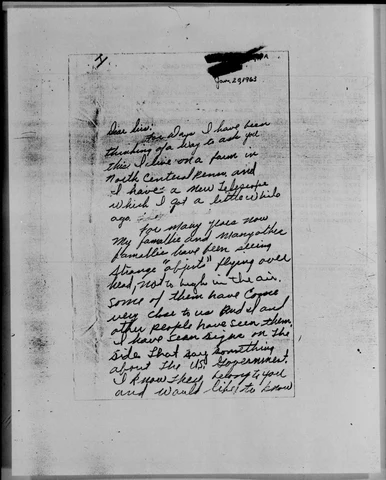 PA
Jan 29, 1963
Dear Sirs.
For Days I have been
thinking of a way to ask you
this I live on a farm in
North Central Penna and
I have a new telescope
which I got a little while
ago.
For many years now
My famillie and many other
famillie have been seeing
strange "objects" flying over
head, not to high in the air.
some of them have come
very close to us and I and
other people have seen them
I have seen signs on the
side that say something
about the U.S. Government.
I know they belong to you
and would like to know